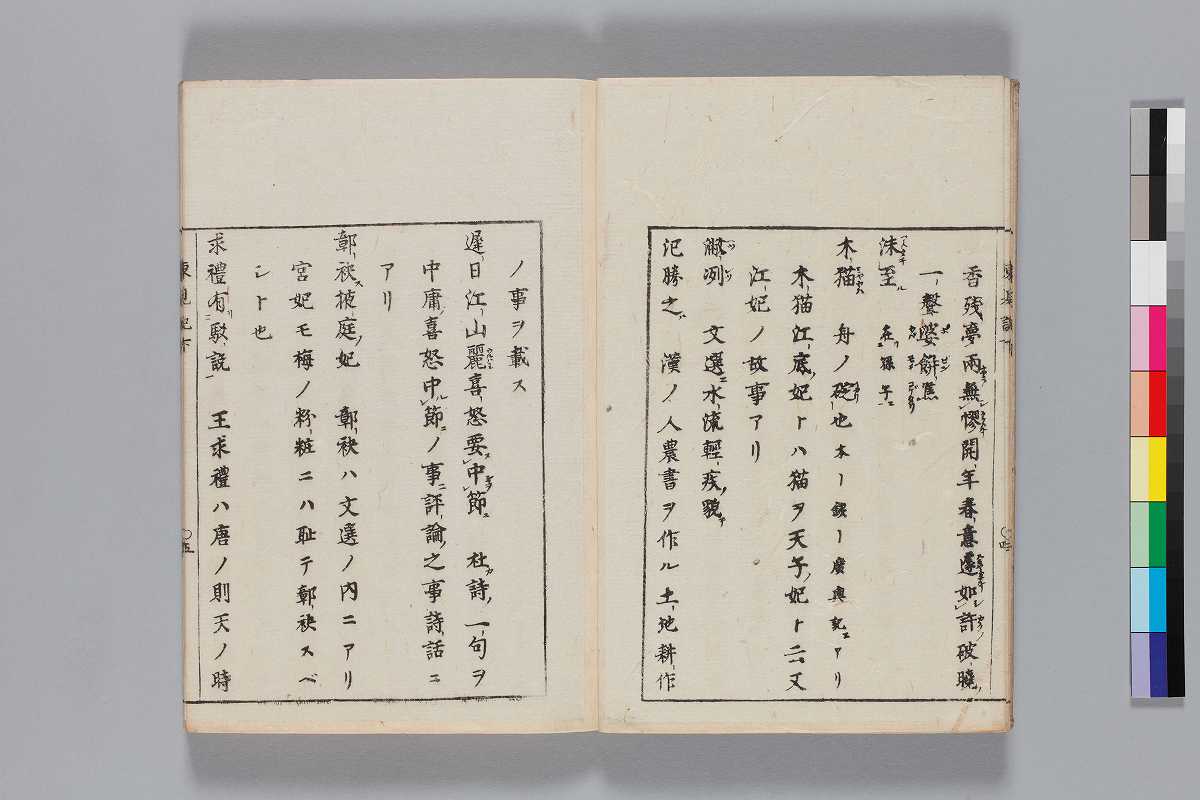 香残夢雨無憀開年春意遽如許破曉
一聲婆餅焦
沫至
木猫 舟ノ碇也 廣輿記ニアリ
木猫江底妃トハ猫ヲ天午ノ妃ト云又
江妃ノ故事アリ
文選ニ水流輕疾貌
氾勝之 漢ノ人農書ヲ作ル土地耕作
ノ事ヲ載ス
遲日江山麗喜怒要中節 杜詩ノ一句ヲ
中庸喜怒中節ノ事評論之事詩話ニ
アリ
鄣袂掖庭ノ妃 鄣袂ハ文選ノ内ニアリ
宮妃モ梅ノ粉粧ニハ耻テ鄣袂スベ
シト也
求禮有駁説 王求禮ハ唐ノ則天ノ時